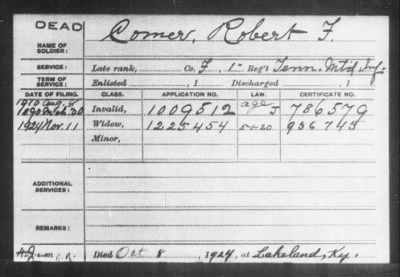 DEAD
Comer, Robert F.
NAME OF SOLDIER:
SERVICE: Late rank, Co. F, 1" Reg't Tenn. Mt'd Inf.
TERM OF SERVICE: Enlisted 1 Discharged 1
DATE OF FILING. CLASS. APPLICATION NO. LAW. CERTIFICATE NO.
1910 Aug. age
1890 30 Invalid, 1009512 J 786579
1924 Nov. 11 Widow, 1225454 5+20 956745
Minor,
ADDITIONAL SERVICES:
REMARKS:
Died Oct 8, 1924, at Lakeland, Ky.